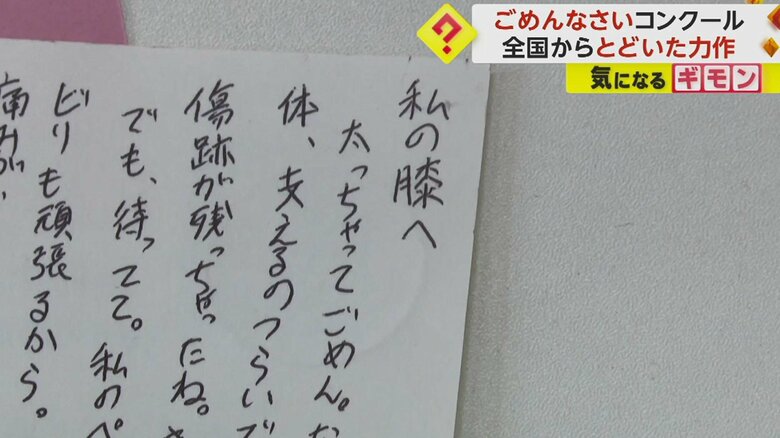 ?
ごめんなさいコンクール
全国からとどいた力作
気になるギモン
私の膝へ
太っちゃってごめん。
体、支えるのつらいで
傷跡が残っちゃったね。
でも、待ってて。私のペ
ビリも頑張るから。
痛みが、